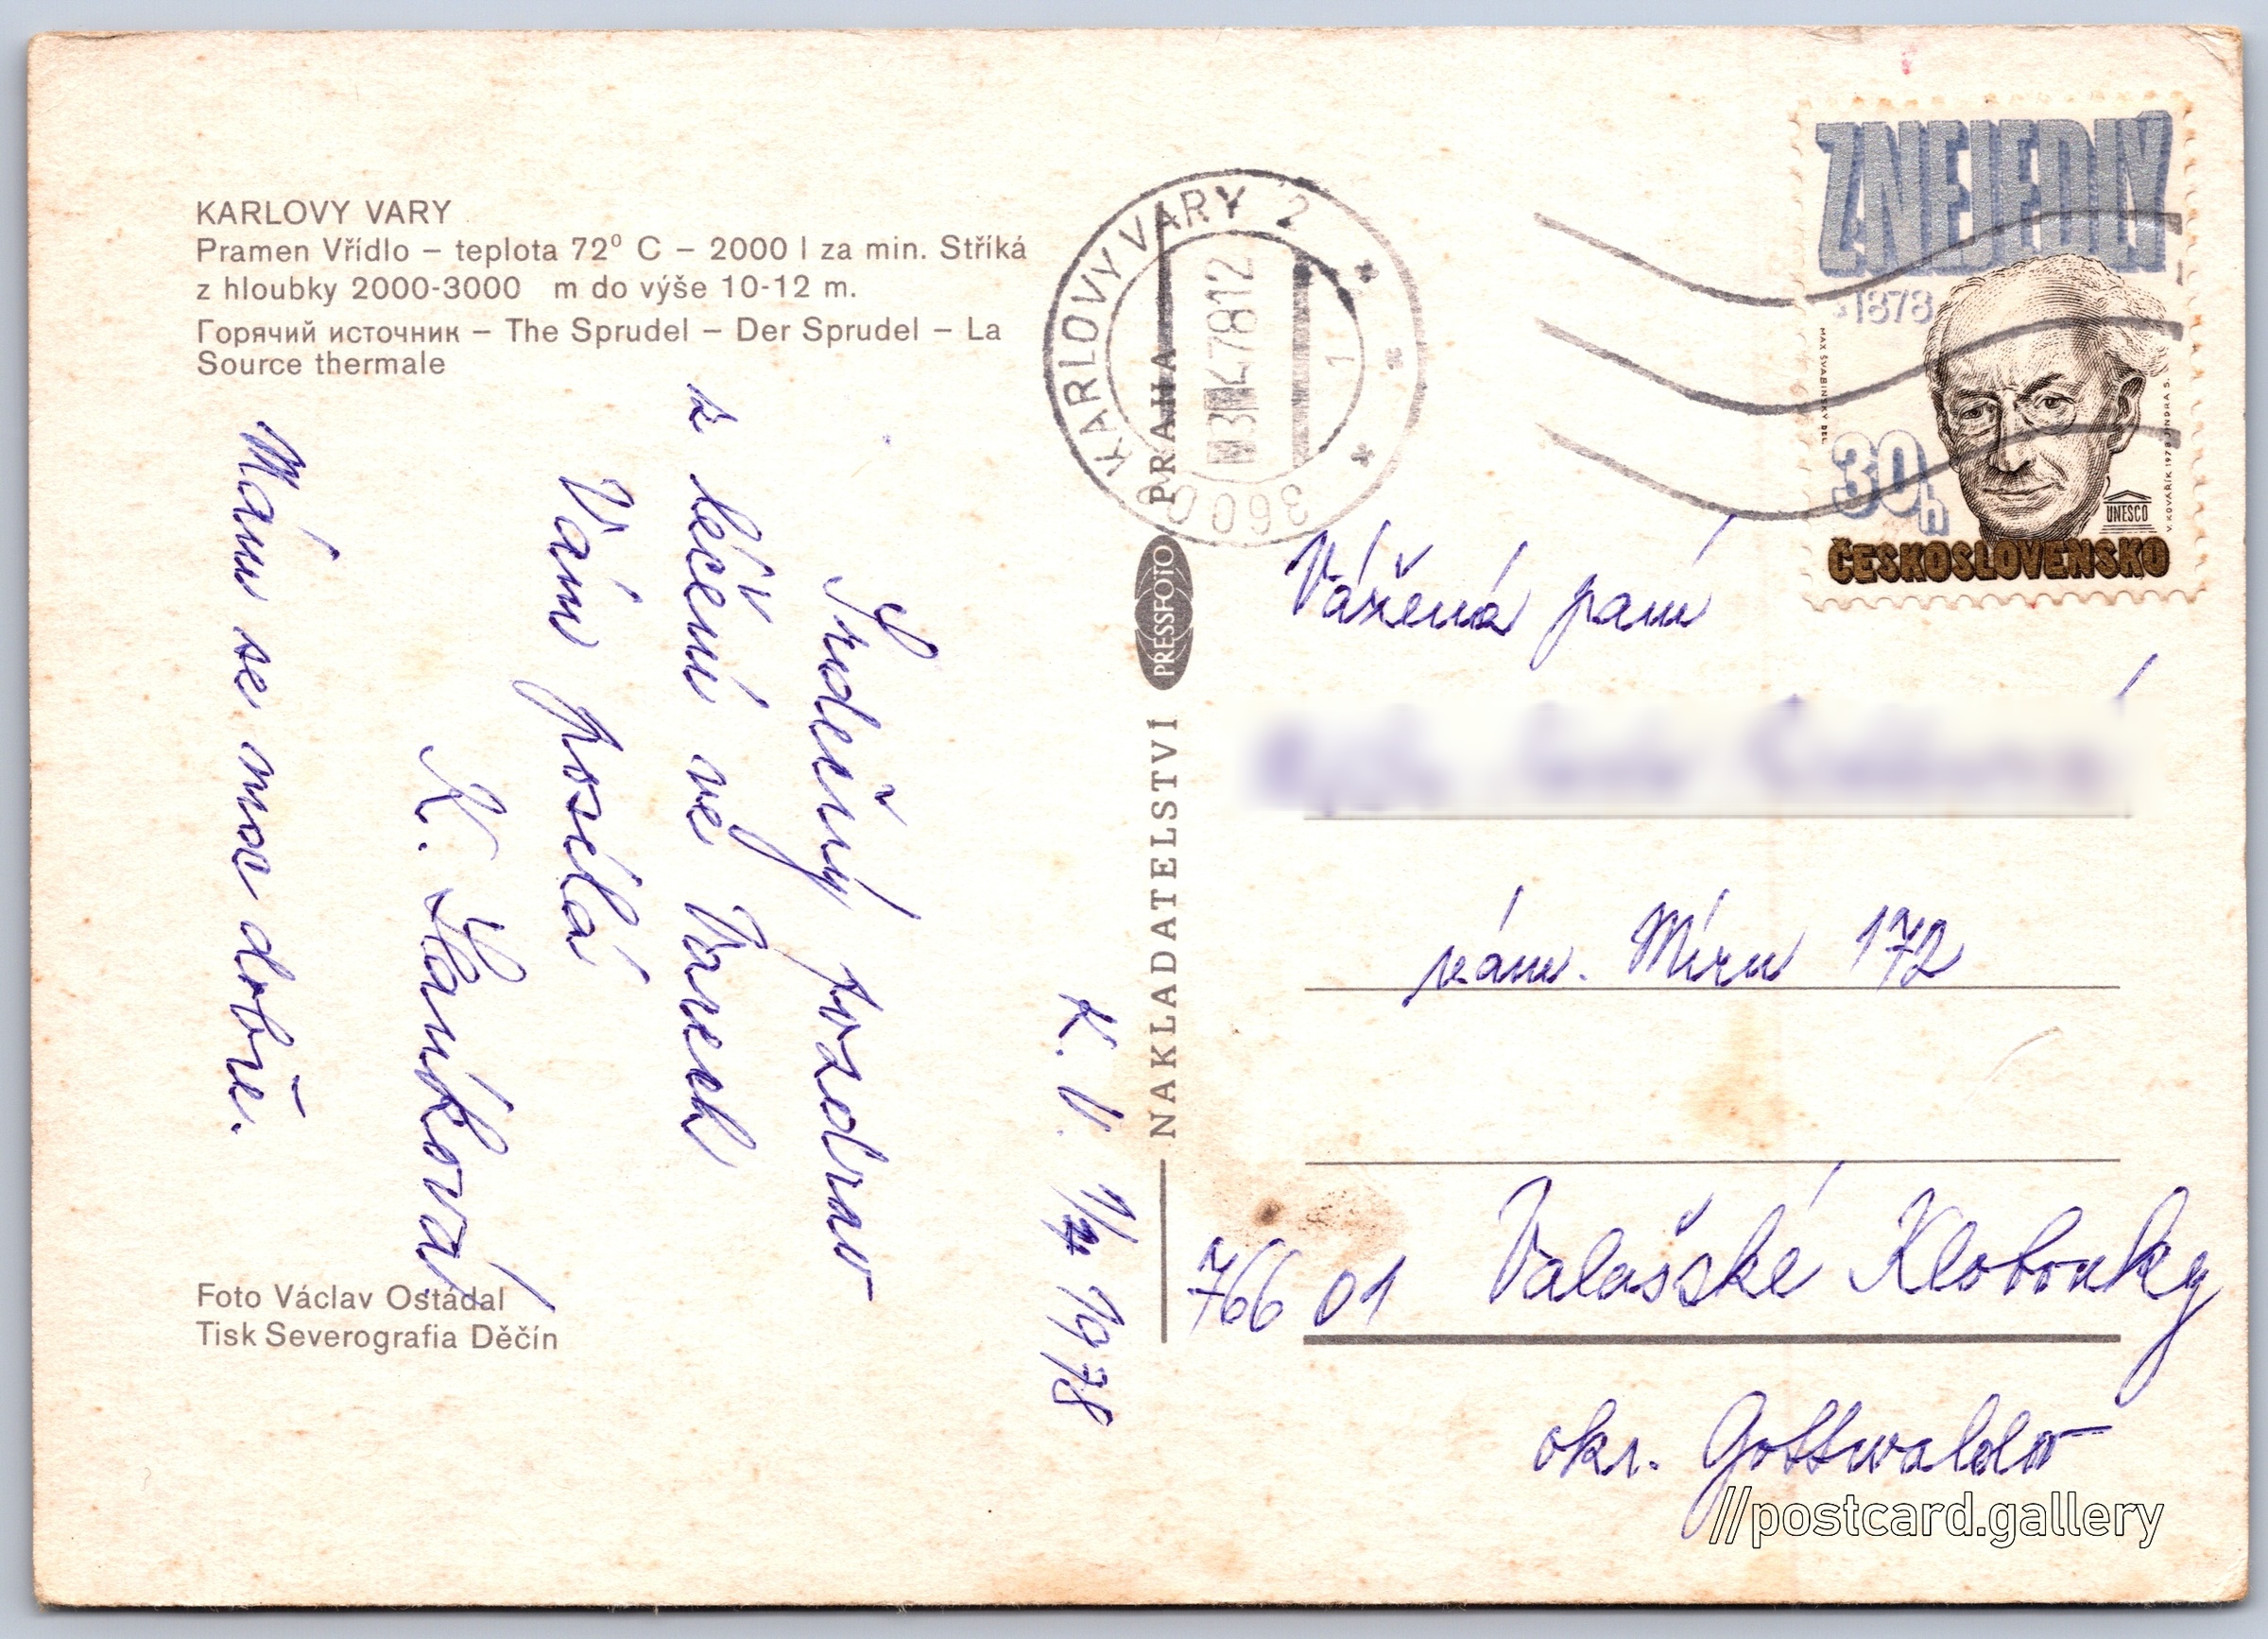 KARLOVY VARY
Pramen Vřídlo – teplota 72⁰ C – 2000 l za min. Stříká
z hloubky 2000-3000 m do výše 10-12 m.
Горячий источник – The Sprudel – Der Sprudel – La
Source thermale
K. V. 1/4 1978
Srdečný pozdrav
z léčení ve Varech
Vám posélá
K. Staníková
Mám se moc dobře.
Foto Václav Ostádal
Tisk Severografia Děčín
NAKLADATELSTVÍ PRESSFOTO PRAHA
KARLOVY VARY 2
3.4.78 12
1
3600
ZNEJEDLÝ
1878
MAX ŠVABINSKÝ DEL.
30h
UNESCO
V. KOVAŘÍK 1978 JINDRA S.
ČESKOSLOVENSKO
Vážená paní
nám. Míru 172
766 01 Valašské Klobouky
okr. Gottwaldov
//postcard.gallery